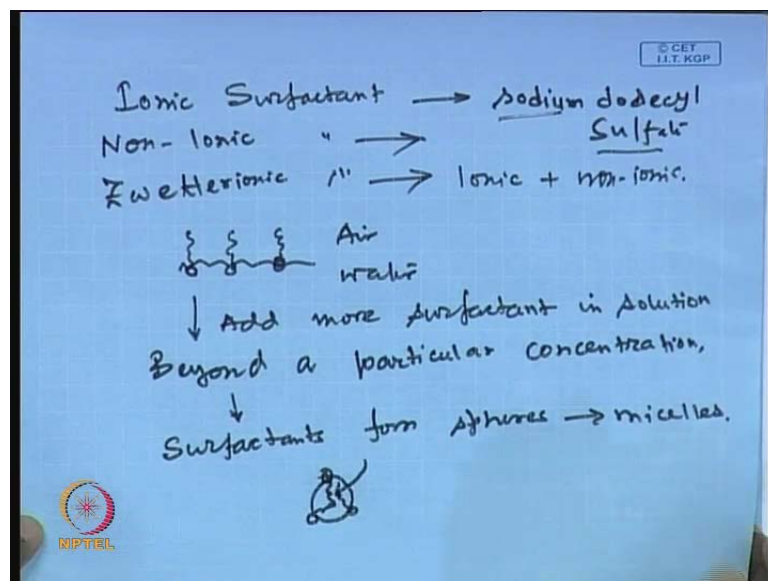 © CET
I.I.T. KGP
Ionic Surfactant → sodium dodecyl
Sulfate
Non-Ionic " →
Zwetterionic " → Ionic + non-ionic.
Air
water
↓ Add more surfactant in solution
Beyond a particular concentration,
↓
Surfactants form spheres → micelles.
NPTEL